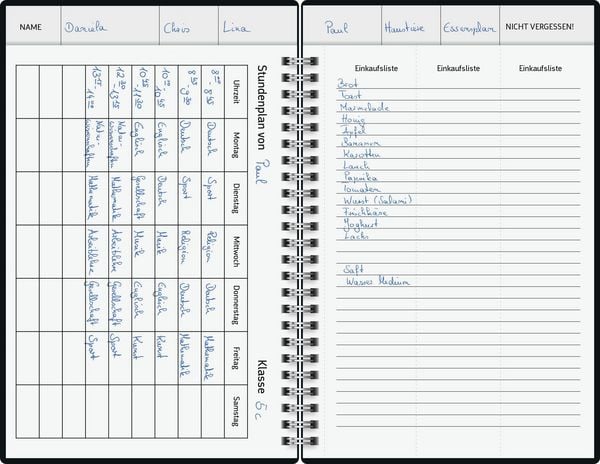 NAME Daniela Chris Lina
Stundenplan von Paul Klasse 5c
Uhrzeit Montag Dienstag Mittwoch Donnerstag Freitag Samstag
8:00 - 8:45 Deutsch Sport Religion Deutsch Mathematik
8:45 - 9:30 Deutsch Sport Religion Deutsch Mathematik
10:00 - 10:45 Englisch Deutsch Musik Englisch Kunst
10:45 - 11:30 Englisch Gesellschaft Musik Englisch Kunst
12:30 - 13:15 Natur-wissenschaften Mathematik Arbeitslehre Gesellschaft Sport
13:15 - 14:00 Natur-wissenschaften Mathematik Arbeitslehre Gesellschaft Sport
Paul Haustiere Essensplan NICHT VERGESSEN!
Einkaufsliste Einkaufsliste Einkaufsliste
Brot
Toast
Marmelade
Honig
Äpfel
Bananen
Karotten
Lauch
Paprika
Tomaten
Wurst (Salami)
Frischkäse
Joghurt
Lachs
Saft
Wasser Medium